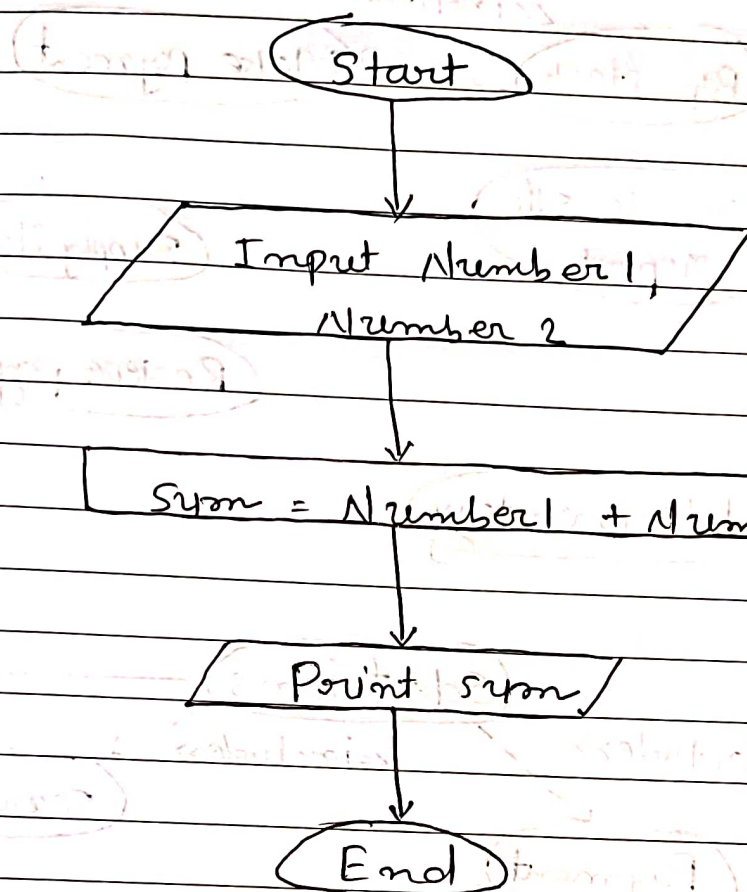 Start
Input Number1,
Number 2
Sum = Number1 + Num
Print sum
End